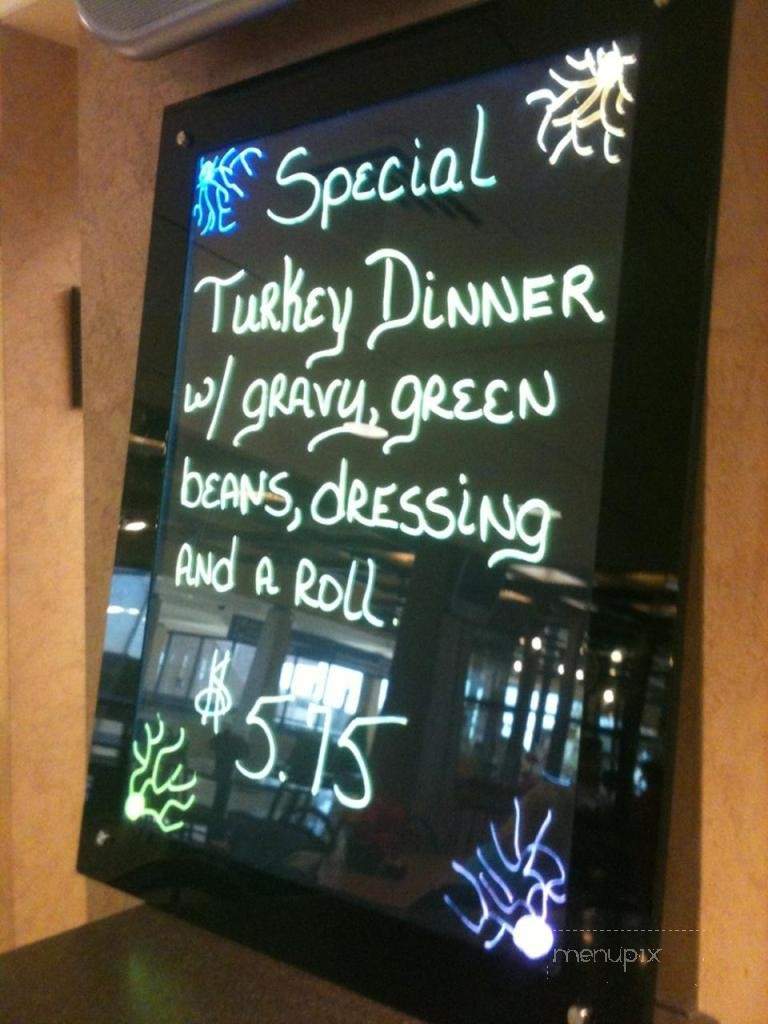 Special
Turkey Dinner
w/ gravy, green
beans, dressing
and a roll.
$5.75
menupix